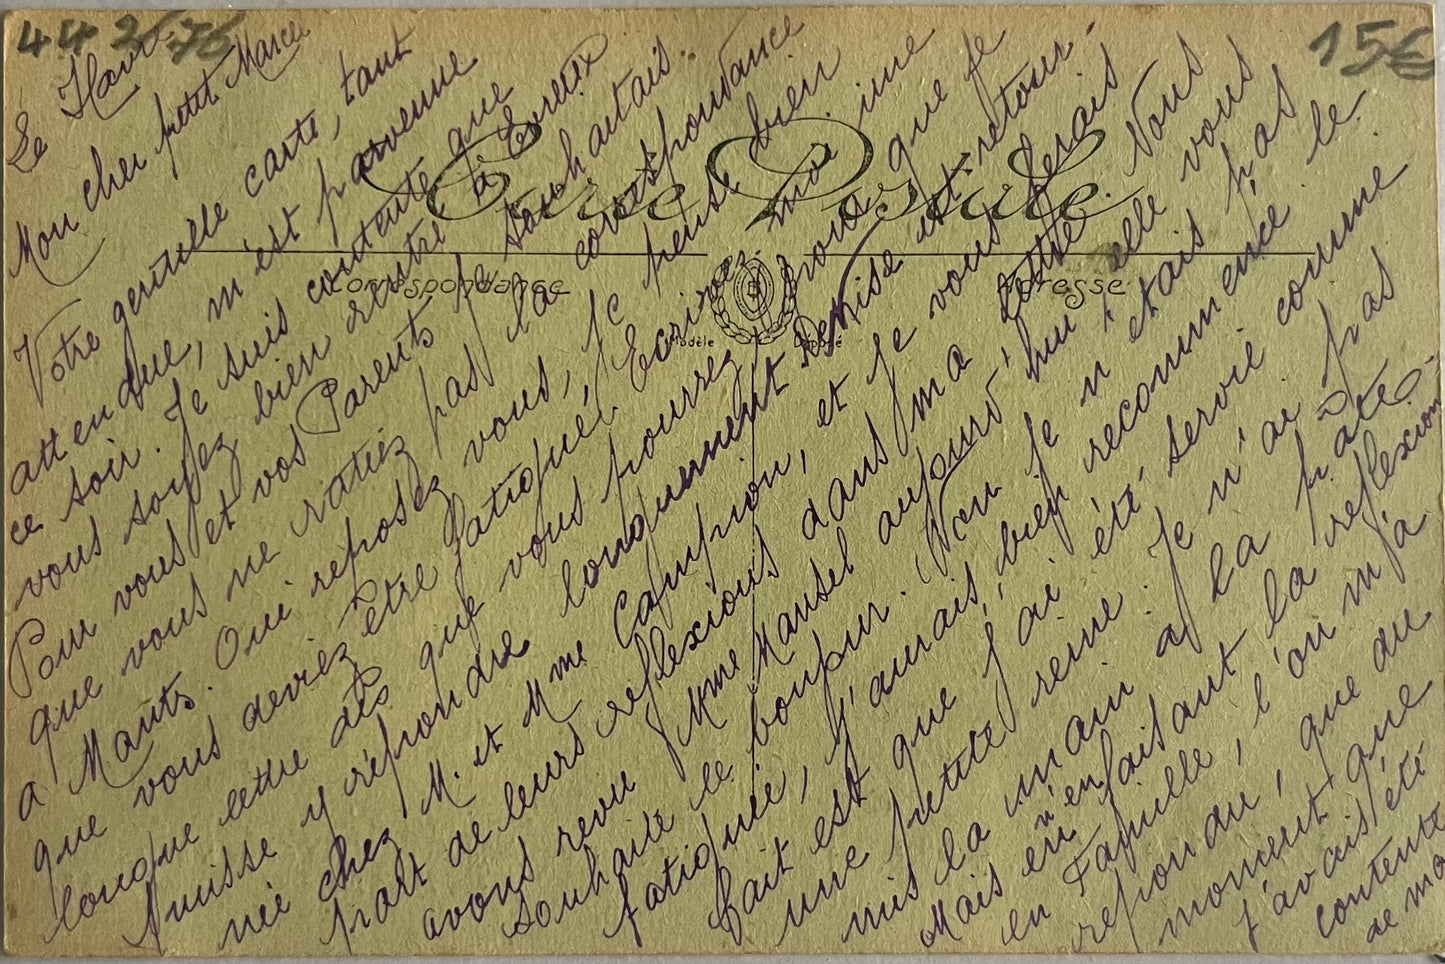 44 2 76
15€
Carte Postale
Correspondance
Adresse
Modèle Déposé
Le Havre
Mon cher petit Marcel
Votre gentille carte, tant
attendue, m'est parvenue
ce soir. Je suis contente que
vous soyez bien rentré à Evreux
Pour vous et vos Parents je le souhaitais..
que vous ne ratiez pas la correspondance
a Mants. Oui reposez vous, je pense bien
que vous deviez être fatigué. Ecrivez moi une
longue lettre dès que vous pourrez pour que je
puisse y répondre longuement Denise est retour-
née chez M. et Mme Campion, et je vous ferais
part de leurs reflexions dans ma lettre Nous
avons revu Mme Mansel aujourd'hui elle vous
souhaite le bonjour. Non je n'étais pas
fatiguée, j'aurais bien recommencé le
fait est que j'ai été servie comme
une petite reine. Je n'ai pas
mis la main a la pâte.
Mais en n'en faisant la reflexion
en Famille, l'on m'a
repondu, que du
moment que
j'avais été
contente